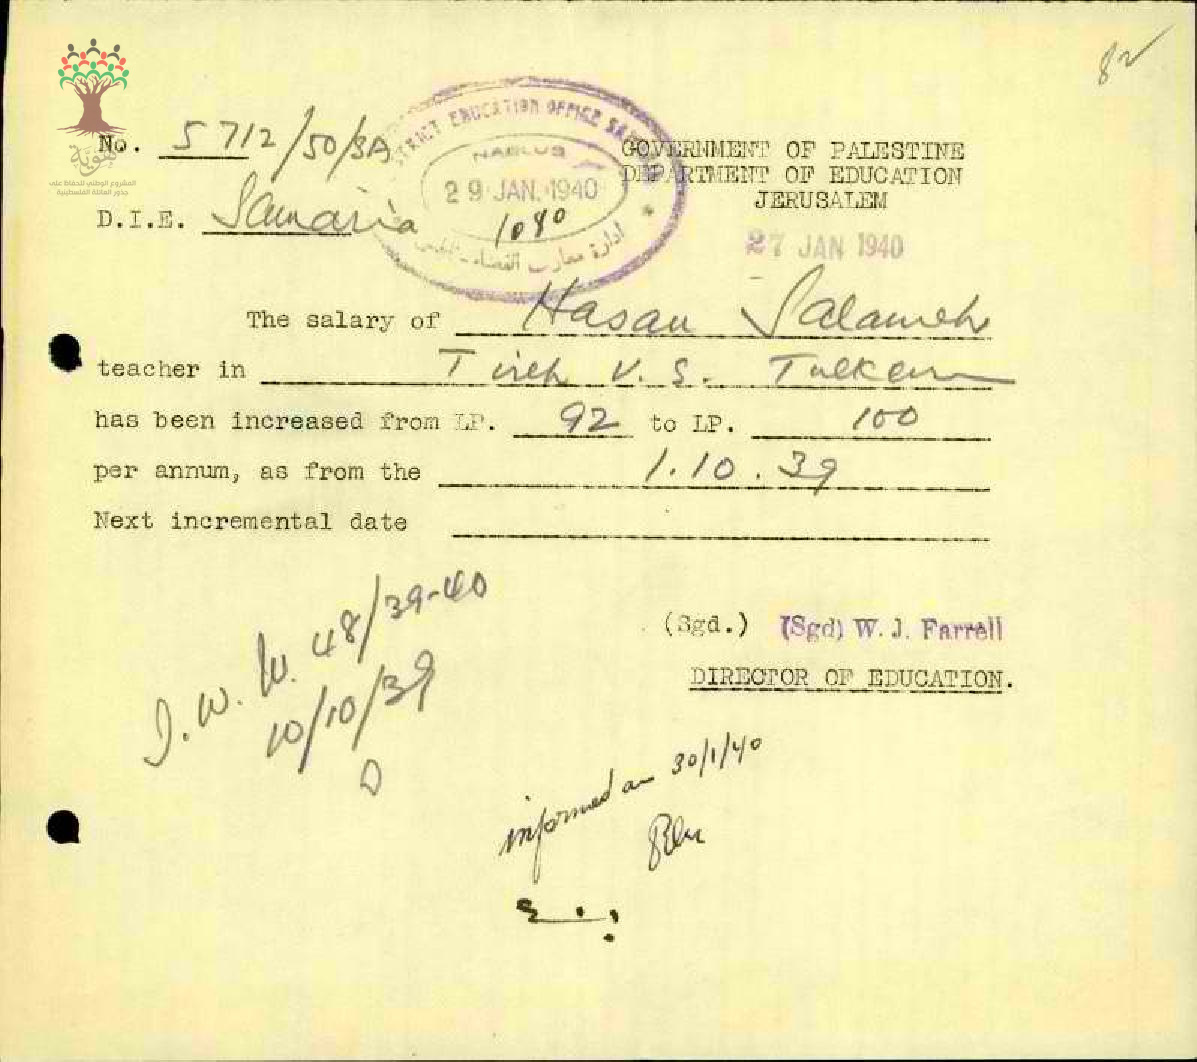 82
المشروع الوطني للحفاظ على
جذور العائلة الفلسطينية
No. 5712/50/3A
D.I.E. Samaria
DISTRICT EDUCATION OFFICE SAMARIA
NABLUS
29 JAN. 1940
1040
ادارة معارف القضاء نابلس
GOVERNMENT OF PALESTINE
DEPARTMENT OF EDUCATION
JERUSALEM
27 JAN 1940
The salary of Hasan Salameh
teacher in Tireh V.S. Tulkarm
has been increased from LP. 92 to LP. 100
per annum, as from the 1.10.39
Next incremental date
(Sgd.) (Sgd) W. J. Farrell
DIRECTOR OF EDUCATION.
48/39-40
10/10/39
informed on 30/1/40